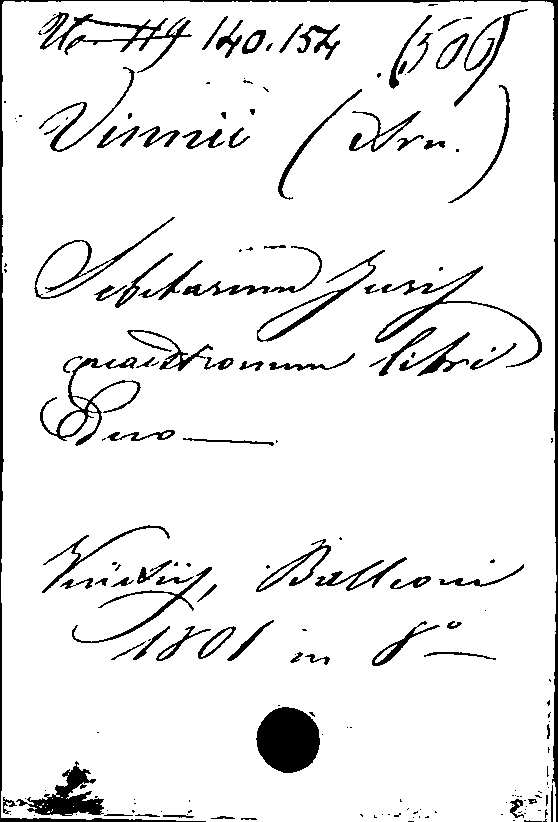 140.154 (506)
Vinnii (Arn.)
Selectarum Juris
quaestionum libri
Duo
Venetiis, Balleoni
1801 in 8°